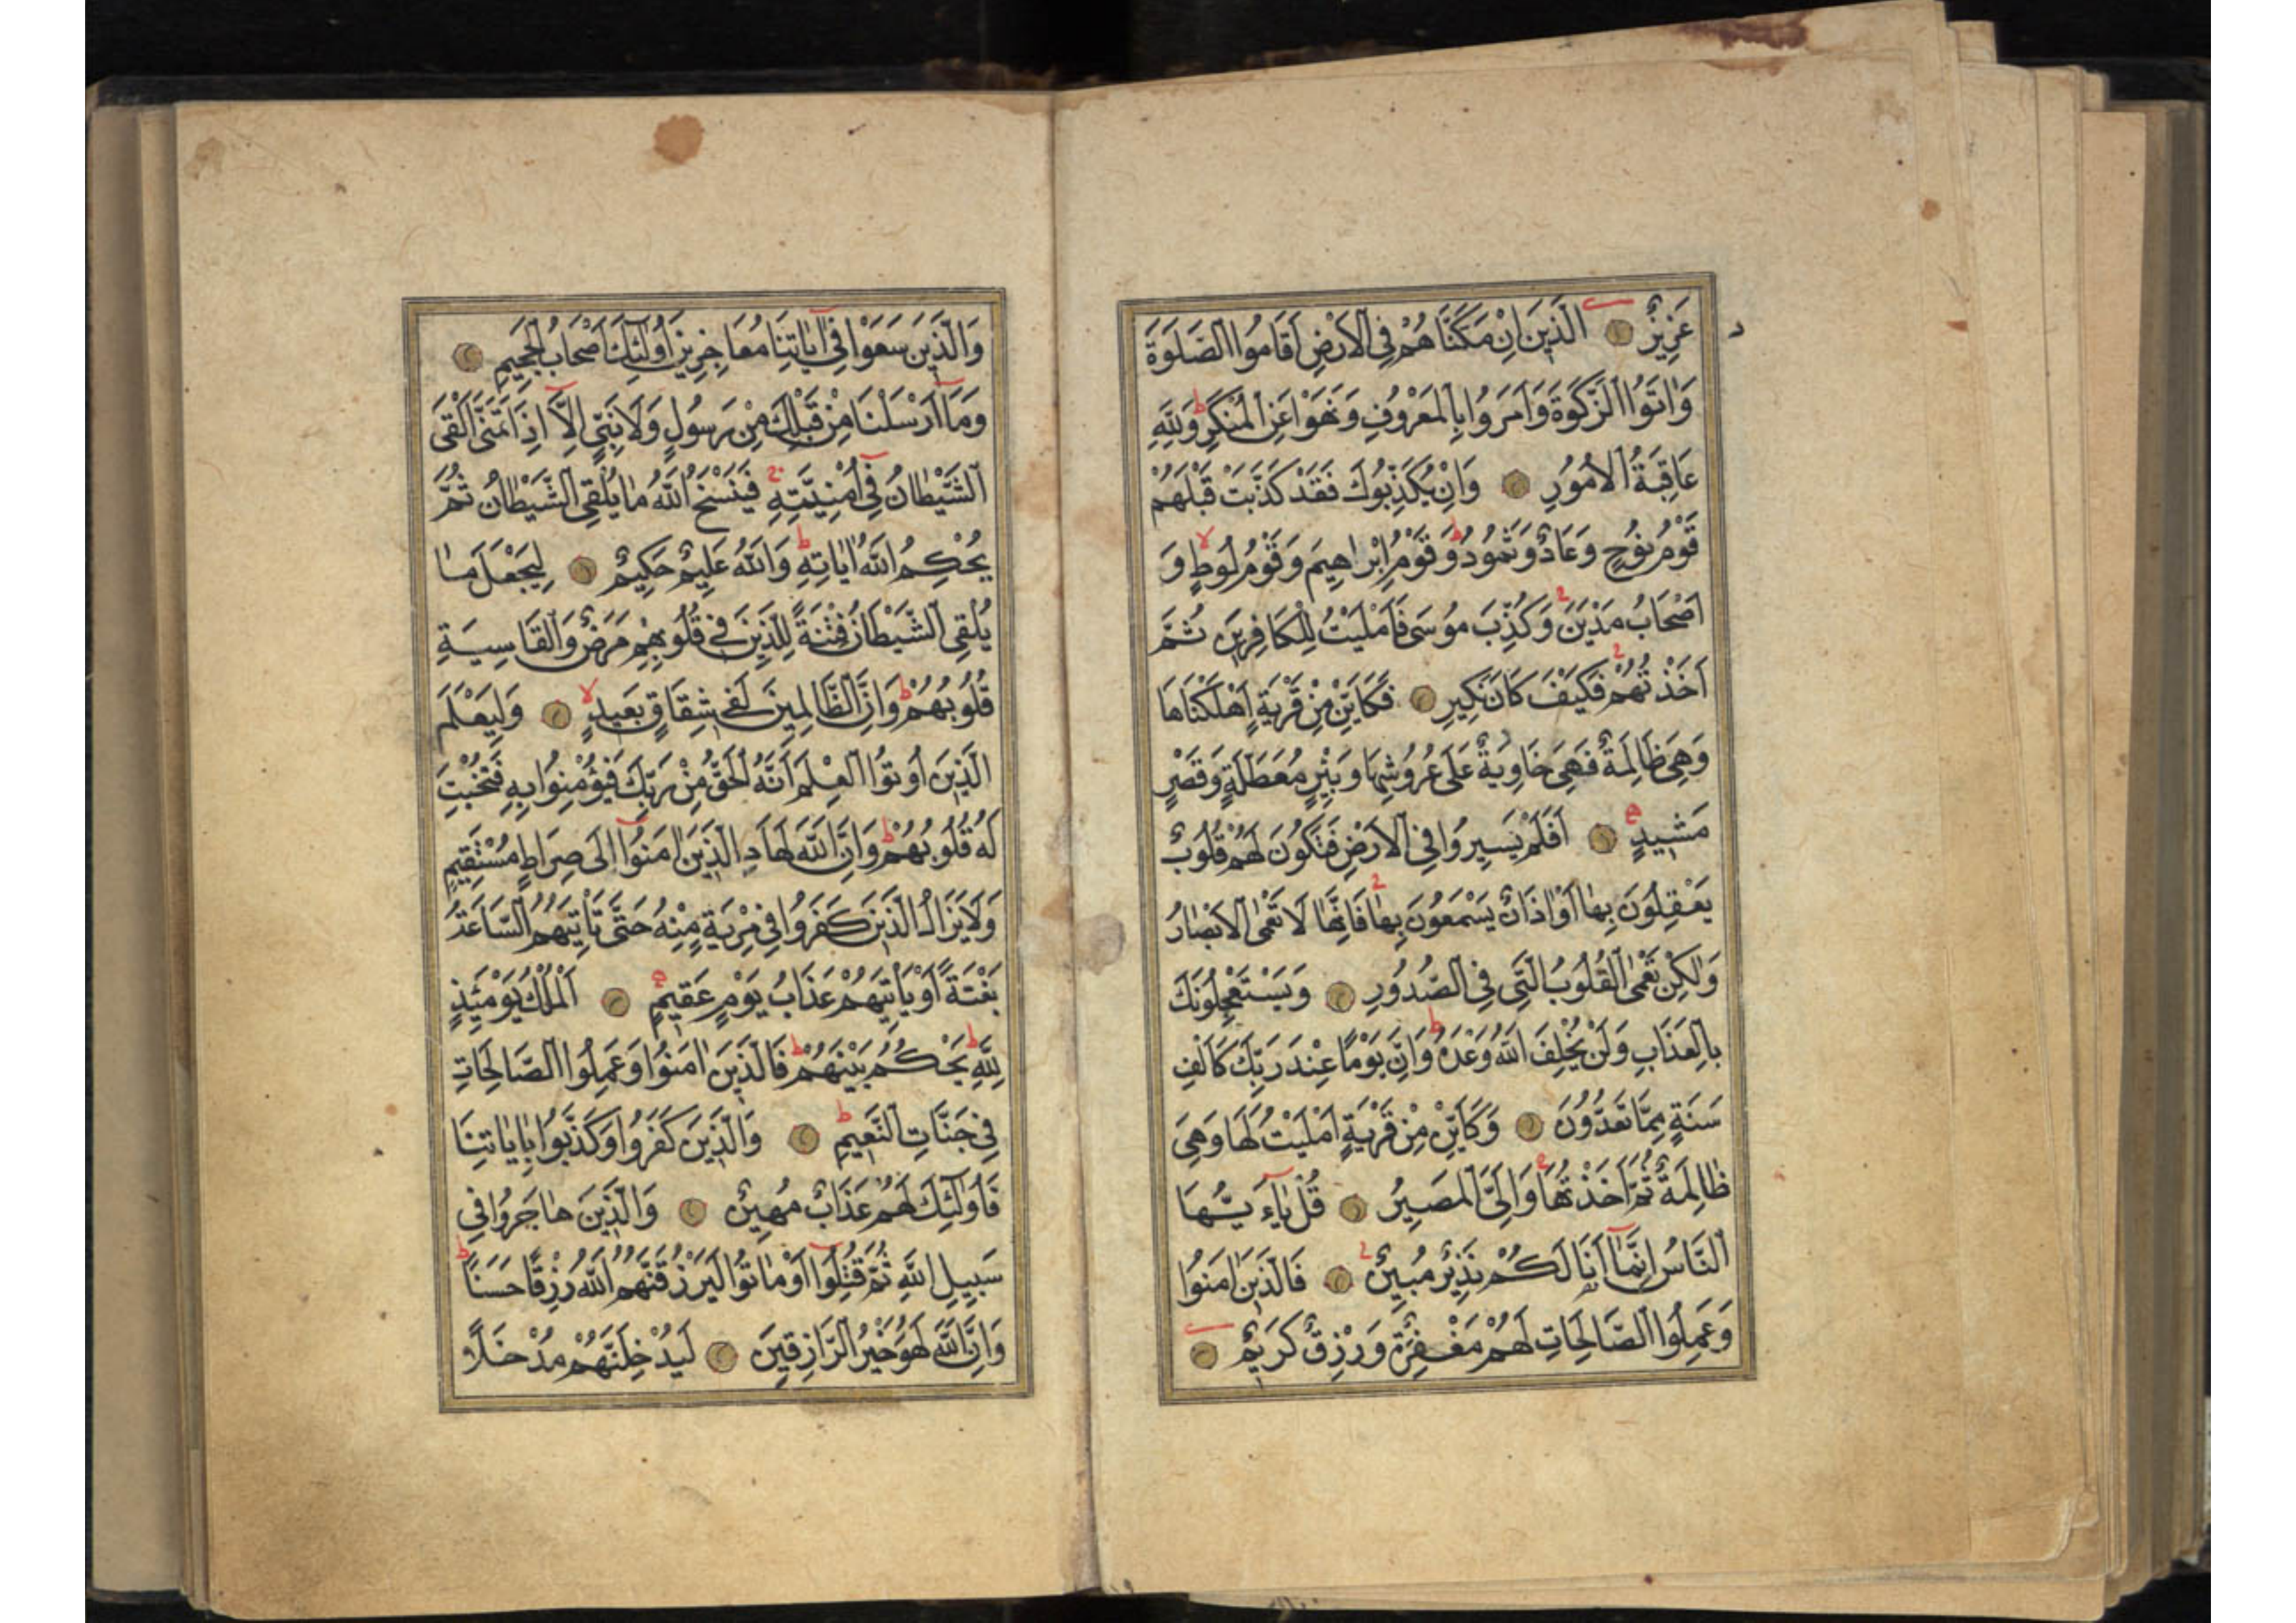 عَزِيزٌ الَّذِينَ اِنْ مَكَّنَّاهُمْ فِي الْاَرْضِ اَقَامُوا الصَّلٰوةَ
وَاٰتَوُا الزَّكٰوةَ وَاَمَرُوا بِالْمَعْرُوفِ وَنَهَوْا عَنِ الْمُنْكَرِ ط وَلِلّٰهِ
عَاقِبَةُ الْاُمُورِ وَاِنْ يُكَذِّبُوكَ فَقَدْ كَذَّبَتْ قَبْلَهُمْ
قَوْمُ نُوحٍ وَعَادٌ وَثَمُودُ ط وَقَوْمُ اِبْرٰاهِيمَ وَقَوْمُ لُوطٍ لا وَ
اَصْحَابُ مَدْيَنَ ج وَكُذِّبَ مُوسٰى فَاَمْلَيْتُ لِلْكَافِرِينَ ثُمَّ
اَخَذْتُهُمْ ج فَكَيْفَ كَانَ نَكِيرِ فَكَاَيِّنْ مِنْ قَرْيَةٍ اَهْلَكْنَاهَا
وَهِيَ ظَالِمَةٌ فَهِيَ خَاوِيَةٌ عَلٰى عُرُوشِهَا وَبِئْرٍ مُعَطَّلَةٍ وَقَصْرٍ
مَشِيدٍ اَفَلَمْ يَسِيرُوا فِي الْاَرْضِ فَتَكُونَ لَهُمْ قُلُوبٌ
يَعْقِلُونَ بِهٰا اَوْ اٰذَانٌ يَسْمَعُونَ بِهٰا ج فَاِنَّهٰا لَا تَعْمَى الْاَبْصٰارُ
وَلٰكِنْ تَعْمَى الْقُلُوبُ الَّتِي فِي الصُّدُورِ وَيَسْتَعْجِلُونَكَ
بِالْعَذَابِ وَلَنْ يُخْلِفَ اللّٰهُ وَعْدَهُ ط وَاِنَّ يَوْمًا عِنْدَ رَبِّكَ كَاَلْفِ
سَنَةٍ مِمَّا تَعُدُّونَ وَكَاَيِّنْ مِنْ قَرْيَةٍ اَمْلَيْتُ لَهَا وَهِيَ
ظٰالِمَةٌ ثُمَّ اَخَذْتُهَا ج وَاِلَيَّ الْمَصِيرُ قُلْ يٰاءَيُّهَا
النَّاسُ اِنَّمَا اَنَا لَكُمْ نَذِيرٌ مُبِينٌ ج فَالَّذِينَ اٰمَنُوا
وَعَمِلُوا الصَّالِحَاتِ لَهُمْ مَغْفِرَةٌ وَرِزْقٌ كَرِيمٌ
وَالَّذِينَ سَعَوْا فِي اٰيَاتِنَا مُعَاجِزِينَ اُولٰئِكَ اَصْحَابُ الْجَحِيمِ
وَمَا اَرْسَلْنَا مِنْ قَبْلِكَ مِنْ رَسُولٍ وَلَا نَبِيٍّ اِلَّا اِذَا تَمَنّٰى اَلْقَى
الشَّيْطَانُ فِي اُمْنِيَّتِهِ ج فَيَنْسَخُ اللّٰهُ مٰا يُلْقِي الشَّيْطٰانُ ثُمَّ
يُحْكِمُ اللّٰهُ اٰيٰاتِهِ ط وَاللّٰهُ عَلِيمٌ حَكِيمٌ لِيَجْعَلَ مٰا
يُلْقِي الشَّيْطَانُ فِتْنَةً لِلَّذِينَ فِي قُلُوبِهِمْ مَرَضٌ وَالْقَاسِيَةِ
قُلُوبُهُمْ ط وَاِنَّ الظَّالِمِينَ لَفِي شِقَاقٍ بَعِيدٍ لا وَلِيَعْلَمَ
الَّذِينَ اُوتُوا الْعِلْمَ اَنَّهُ الْحَقُّ مِنْ رَبِّكَ فَيُؤْمِنُوا بِهِ فَتُخْبِتَ
لَهُ قُلُوبُهُمْ ط وَاِنَّ اللّٰهَ لَهَادِ الَّذِينَ اٰمَنُوا اِلٰى صِرَاطٍ مُسْتَقِيمٍ
وَلَا يَزَالُ الَّذِينَ كَفَرُوا فِي مِرْيَةٍ مِنْهُ حَتَّى تَأْتِيَهُمُ السَّاعَةُ
بَغْتَةً اَوْ يَأْتِيَهُمْ عَذَابُ يَوْمٍ عَقِيمٍ اَلْمُلْكُ يَوْمَئِذٍ
لِلّٰهِ ط يَحْكُمُ بَيْنَهُمْ ط فَالَّذِينَ اٰمَنُوا وَعَمِلُوا الصَّالِحَاتِ
فِي جَنَّاتِ النَّعِيمِ ط وَالَّذِينَ كَفَرُوا وَكَذَّبُوا بِاٰيَاتِنَا
فَاُولٰئِكَ لَهُمْ عَذَابٌ مُهِينٌ وَالَّذِينَ هٰاجَرُوا فِي
سَبِيلِ اللّٰهِ ثُمَّ قُتِلُوا اَوْ مٰاتُوا لَيَرْزُقَنَّهُمُ اللّٰهُ رِزْقًا حَسَنًا ط
وَاِنَّ اللّٰهَ لَهُوَ خَيْرُ الرَّازِقِينَ لَيُدْخِلَنَّهُمْ مُدْخَلًا